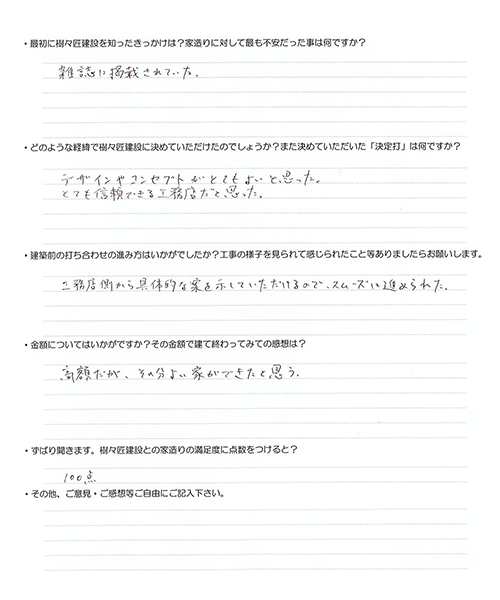 ・最初に樹々匠建設を知ったきっかけは？家造りに対して最も不安だった事は何ですか？
雑誌に掲載されていた。
・どのような経緯で樹々匠建設に決めていただけたのでしょうか？また決めていただいた「決定打」は何ですか？
デザインやコンセプトがとてもよいと思った。
とても信頼できる工務店だと思った。
・建築前の打ち合わせの進み方はいかがでしたか？工事の様子を見られて感じられたこと等ありましたらお願いします。
工務店側から具体的な案を示していただけるので、スムーズに進められた。
・金額についてはいかがですか？その金額で建て終わってみての感想は？
高額だが、その分よい家ができたと思う。
・ずばり聞きます。樹々匠建設との家造りの満足度に点数をつけると？
100点
・その他、ご意見・ご感想等ご自由にご記入下さい。